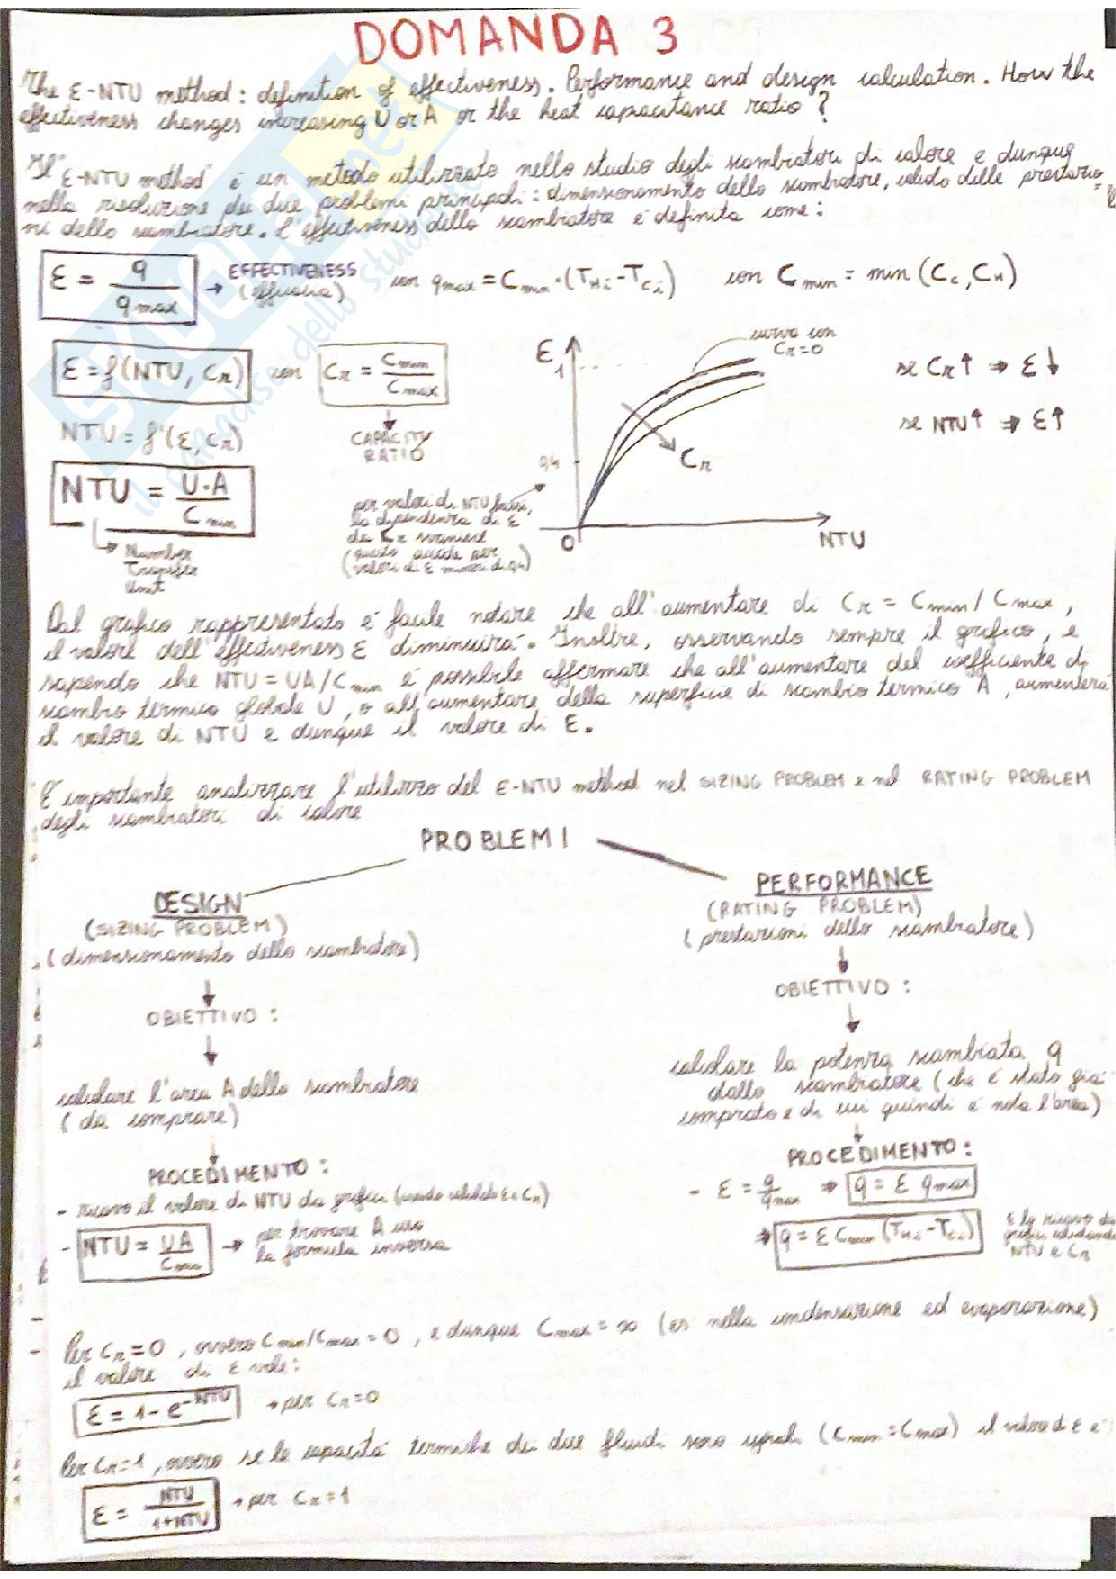 DOMANDA 3
The ε-NTU method : definition of effectiveness. Performance and design calculation. How the
effectiveness changes increasing U or A or the heat capacitance ratio ?
Il "ε-NTU method" è un metodo utilizzato nello studio degli scambiatori di calore e dunque
nella risoluzione dei due problemi principali : dimensionamento dello scambiatore, calcolo delle prestazio=
ni dello scambiatore. L'effectiveness dello scambiatore è definita come :
ε = q / qmax → EFFECTIVENESS (efficacia) con qmax = Cmin · (THi - TCi) con Cmin = min (Cc, CH)
ε = f(NTU, Cr) con Cr = Cmin / Cmax
CAPACITY RATIO
NTU = f'(ε, Cr)
NTU = U·A / Cmin
Number
Transfer
Unit
ε
1
0,4
0
NTU
curva con
Cr=0
Cr
per valori di NTU bassi,
la dipendenza di ε
da Cr svanisce
(questo accade per
valori di ε minori di 0,4)
se Cr ↑ ⇒ ε ↓
se NTU ↑ ⇒ ε ↑
Dal grafico rappresentato è facile notare che all'aumentare di Cr = Cmin / Cmax ,
il valore dell'effectiveness ε diminuirà. Inoltre, osservando sempre il grafico, e
sapendo che NTU = UA/Cmin è possibile affermare che all'aumentare del coefficiente di
scambio termico globale U, o all'aumentare della superficie di scambio termico A, aumenterà
il valore di NTU e dunque il valore di ε.
È importante analizzare l'utilizzo del ε-NTU method nel SIZING PROBLEM e nel RATING PROBLEM
degli scambiatori di calore
PROBLEMI
DESIGN
(SIZING PROBLEM)
(dimensionamento dello scambiatore)
OBIETTIVO :
calcolare l'area A dello scambiatore
(da comprare)
PROCEDIMENTO :
- ricavo il valore di NTU da grafici (avendo calcolato ε e Cr)
- NTU = UA / Cmin → per trovare A uso
la formula inversa
PERFORMANCE
(RATING PROBLEM)
(prestazioni dello scambiatore)
OBIETTIVO :
calcolare la potenza scambiata q
dallo scambiatore (che è stato già
comprato e di cui quindi è nota l'area)
PROCEDIMENTO :
- ε = q / qmax ⇒ q = ε qmax
⇒ q = ε Cmin (THi - TCi)
ε lo ricavo da
grafici calcolando
NTU e Cr
Per Cr = 0 , ovvero Cmin/Cmax = 0 , e dunque Cmax = ∞ (es nella condensazione ed evaporazione)
il valore di ε vale :
ε = 1 - e^-NTU → per Cr = 0
Per Cr = 1 , ovvero se le capacità termiche dei due fluidi sono uguali (Cmin = Cmax) il valore di ε è
ε = NTU / 1+NTU → per Cr = 1